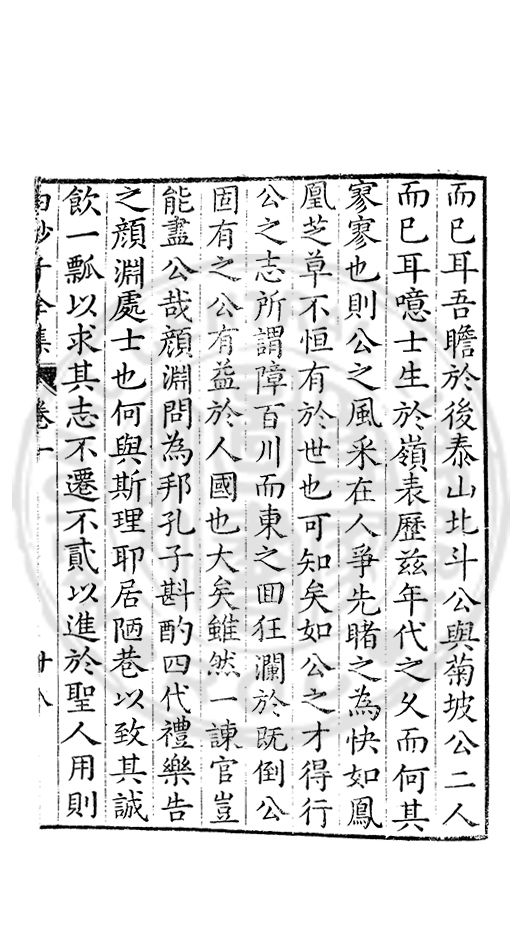 而已耳吾瞻於後泰山北斗公與菊坡公二人
而已耳噫士生於嶺表歷茲年代之久而何其
寥寥也則公之風采在人爭先睹之為快如鳳
凰芝草不恒有於世也可知矣如公之才得行
公之志所謂障百川而東之回狂瀾於既倒公
固有之公有益於人國也大矣雖然一諫官豈
能盡公哉顏淵問為邦孔子斟酌四代禮樂告
之顏淵處士也何與斯理耶居陋巷以致其誠
飲一瓢以求其志不遷不貳以進於聖人用則
白沙子全集 卷一 廿八